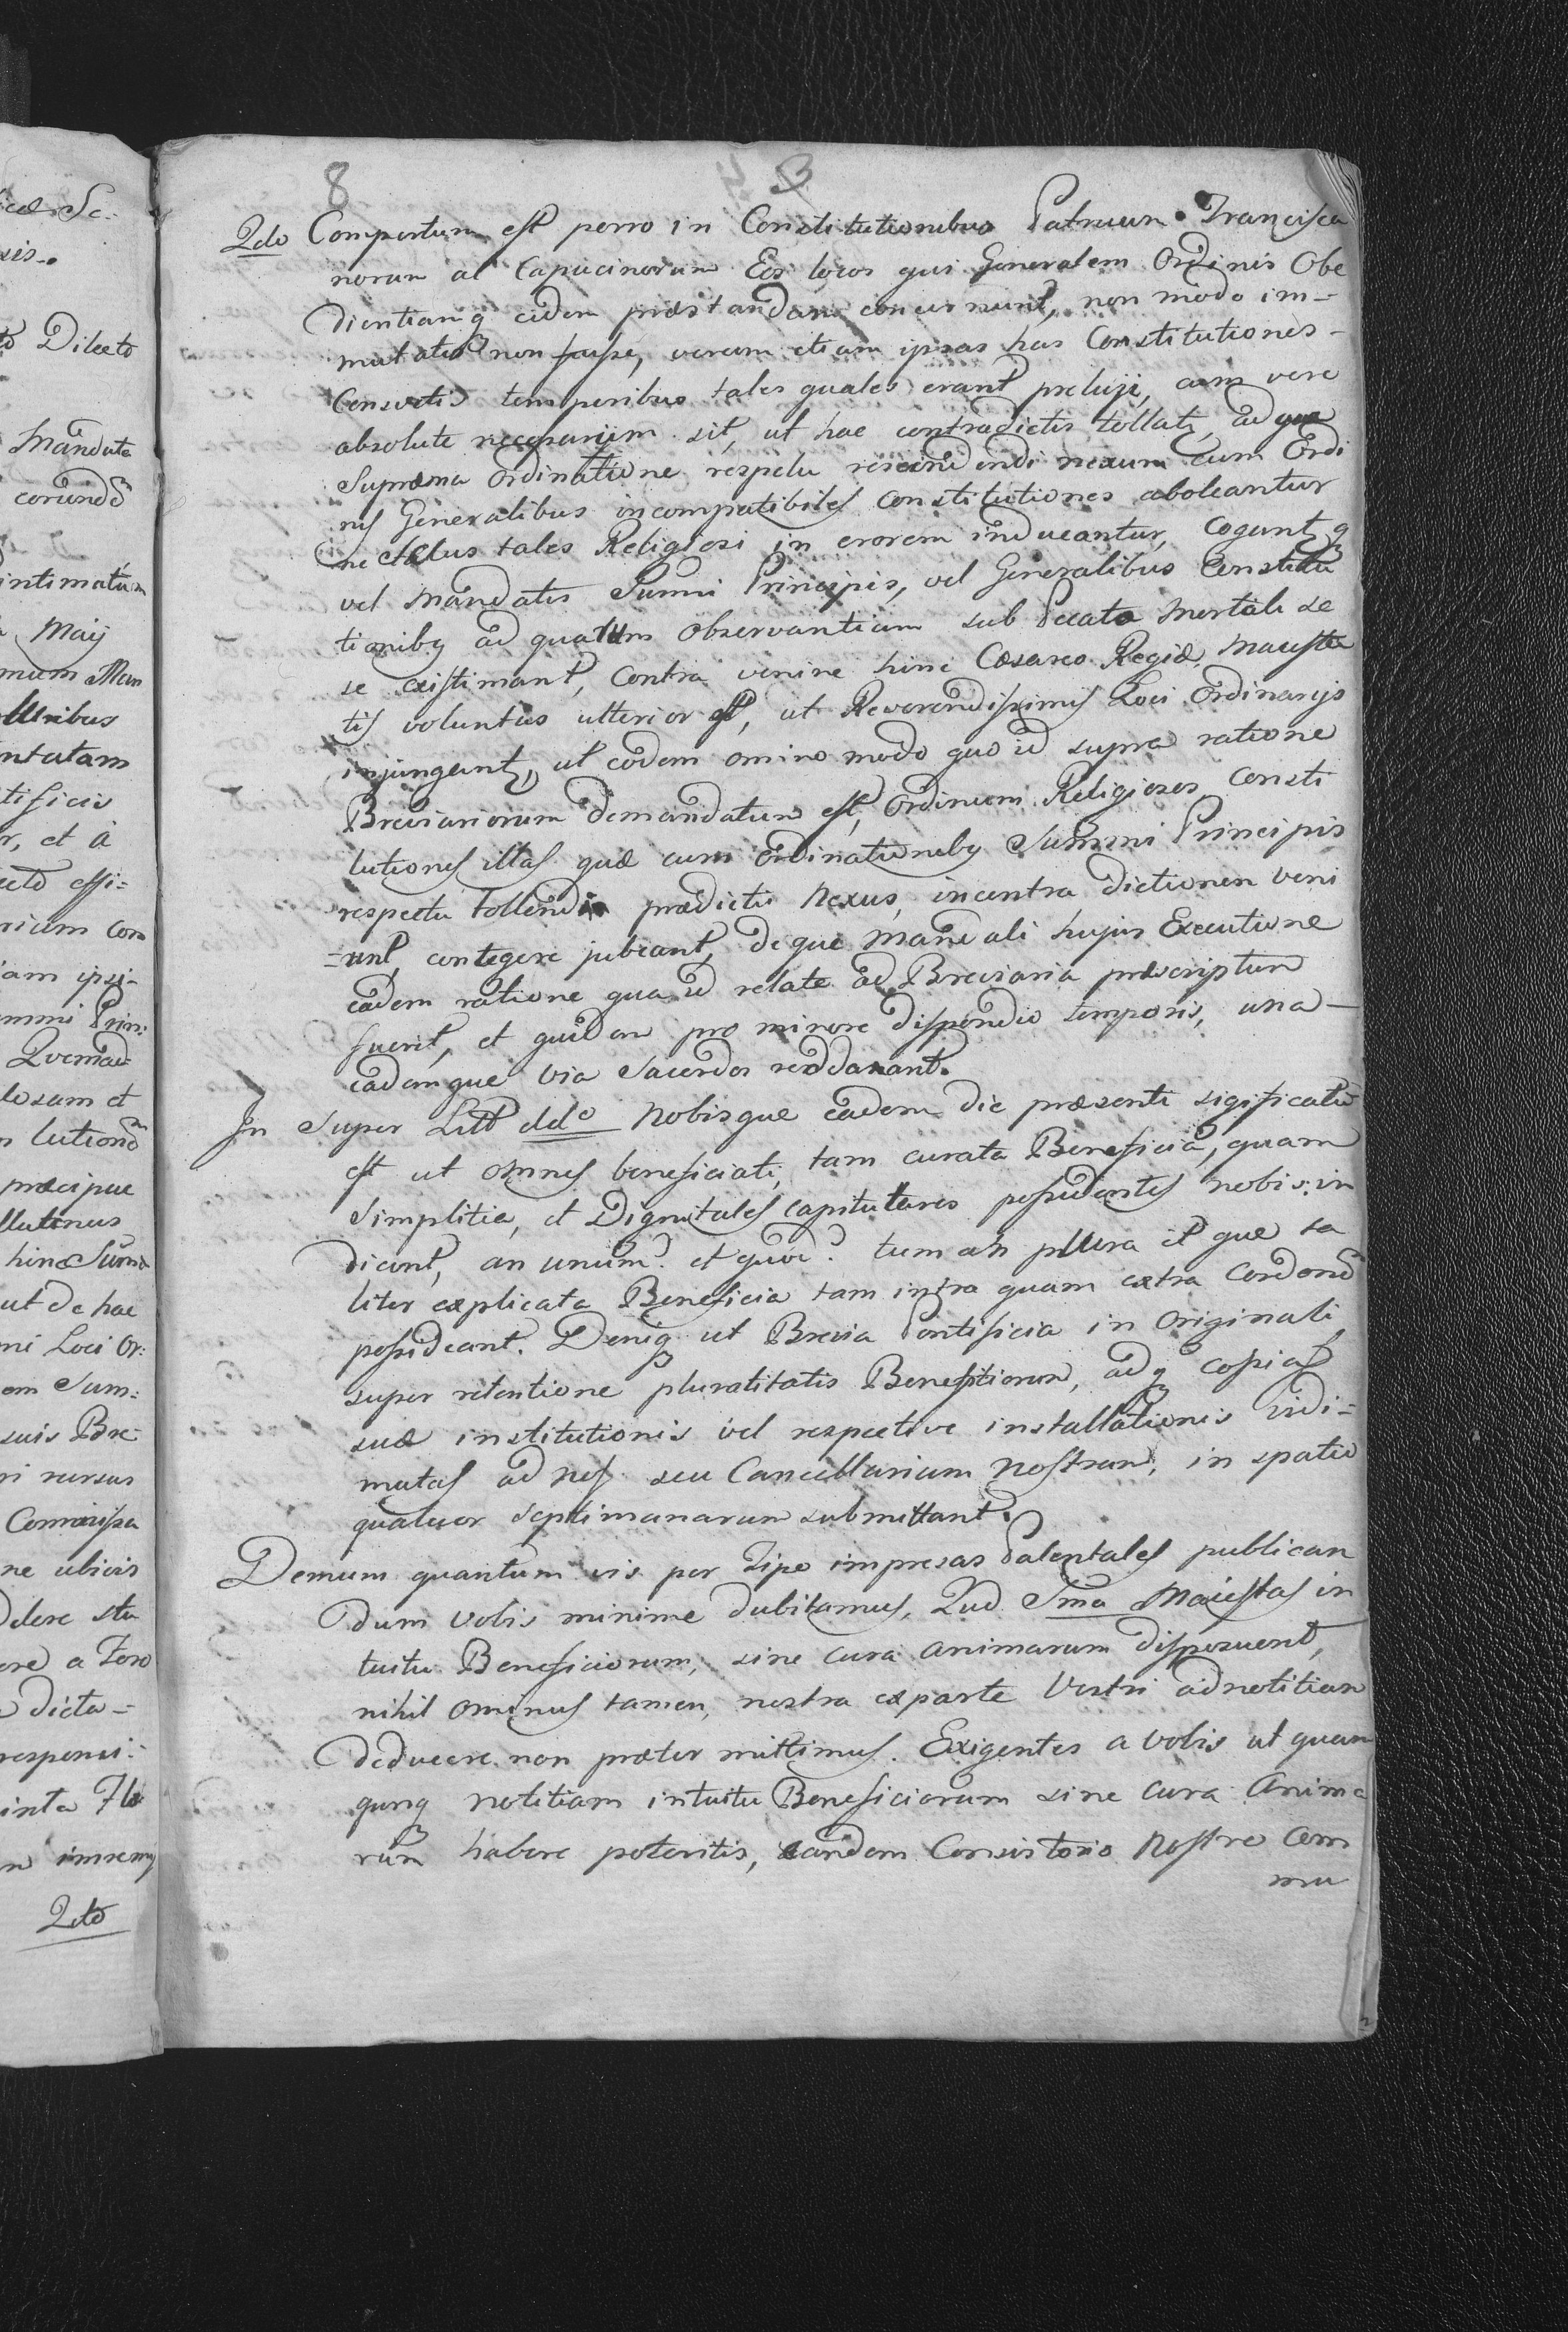 8 3
2do Compertum est porro in Constitutionibus Patruum Francisca
norum ac Capucinorum Eos locos qui Generalem Ordinis Obe
dientiamq eidem præstandam concernunt, non modo im-
mutatos non fuisse, verum etiam ipsas has Constitutiones-
Consvetis temporibus tales quales erant prelugi, cum vero
absolute necessarium sit, ut hac contradictis tollatr, ad que
Suprema Ordinatione respectu rescindendi nexum cum Ordi
nis Generalibus incompatibiles Constitutiones aboleantur
ne secus tales Religiosi in erorem inducantur, Coguntq
vel Mandatis Sumi Principis, vel Generalibus Constitu
tionibq ad quarum Observantiam sub Peccato Mortali se
se existimant, Contra venire hinc Cæsareo Regiæ Maiesta
tis voluntas ulterior est, ut Reverendissimis Loci Ordinarijs
injungant, ut eodem omino modo quo id supra ratione
Breviariorum demandatum est, Ordinum Religiosos Consti
tutiones illas quæ cum Ordinationibq Summi Principis
respectu tollendi prædicti Nexus, incontra dictionem veni
=unt, contegere jubeant, deque Mandati hujus Executione
eadem ratione qua id relate ad Breviaria præscriptum
fuerit, et quidem pro minore dispendio temporis, una-
eademque via Sacerdos reddant.
In super Litt ddo Nobisque eadem die præsenti sigificatū
est ut omnes beneficiati, tam curata Beneficia, quam
Simplitia, et Dignitates Capitulares possidentes nobis in
dicent, an unum? et quod? tum an plura et que ta
liter explicata Beneficia tam intra quam extra Cordonē
possideant. Deniq ut Brevia Pontificia in Originali
super retentione pluralitatis Benefitiorum, adq copias
suæ institutionis vel respective installationis vidi=
matas ad Nos seu Cancellariam Nostram, in spatio
quatuor Septimanarum submittant.
Demum quantum vis per Tipo impresas Patentales publican
dum vobis minime dubitamus, Qud Sma Maiestas in
tuitu Beneficiorum, sine cura animarum disposuerit,
nihil ominus tamen, nostra exparte Vestri adnotitiam
deducere non præter mittimus. Exigentes a vobis ut quam
qunq notitiam intuitu Beneficiorum sine cura Anima
rum habere poteritis, eandem Consistorio Nostro Com
mu
icæ Sc:
sis.
to Dilecto
Mandata
eorundē
intimatum
Maij
ntatam
tificis
r, et à
ecto effi=
am ipsi-
mmi Prin:
Qvemad=
losam et
præcipue
hinc Sum
ut de hac
ni Loci Or:
em Sum:
suis Bre-
ri rursus
Commissa
ne ubivis
ere a Foro
dicta=
responsi:
2do